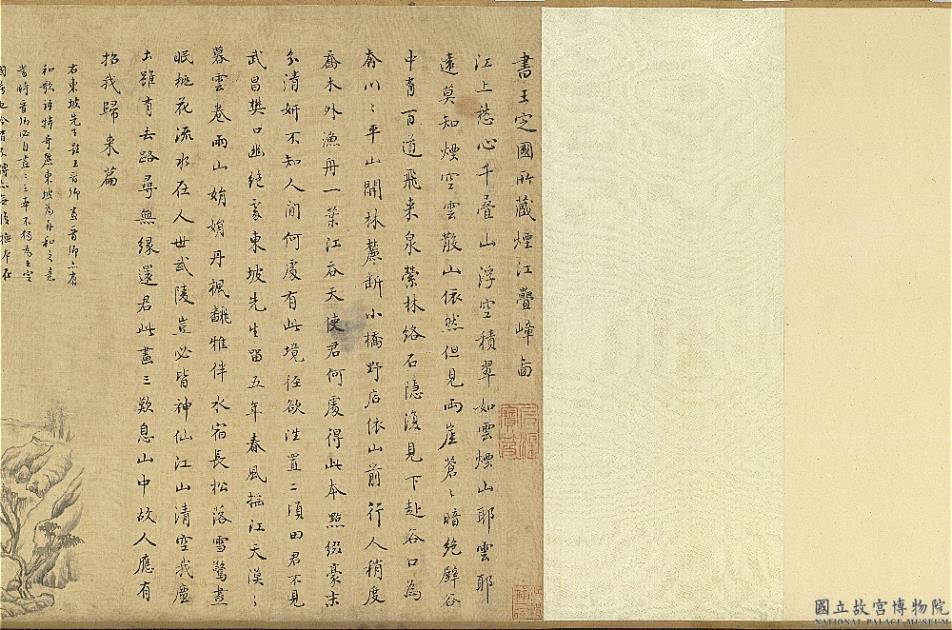 書王定國所藏煙江疊嶂圖
江上愁心千疊山浮空積翠如雲煙山耶雲耶
遠莫知煙空雲散山依然但見兩崖蒼〻暗絕壁谷
中有百道飛來泉縈林絡石隱復見下赴谷口為
奔川〻平山開林麓斷小橋野店依山前行人稍度
喬木外漁舟一葉江吞天使君何處得此本點綴豪末
分清妍不知人間何處有此境徑欲往置二頃田君不見
武昌樊口幽絕處東坡先生留五年春風搖江天漠〻
暮雲卷雨山娟娟丹楓翻雅伴水宿長松落雪驚晝
眠桃花流水在人世武陵豈必皆神仙江山清空我塵
土雖有去路尋無緣還君此畫三歎息山中故人應有
招我歸來篇
右東坡先生題王晉卿畫晉卿亦有
和歌詩特奇麗東坡為再和之意
當時晉卿必自畫二三本不獨為王定
國
國立故宮博物院
NATIONAL PALACE MUSEUM